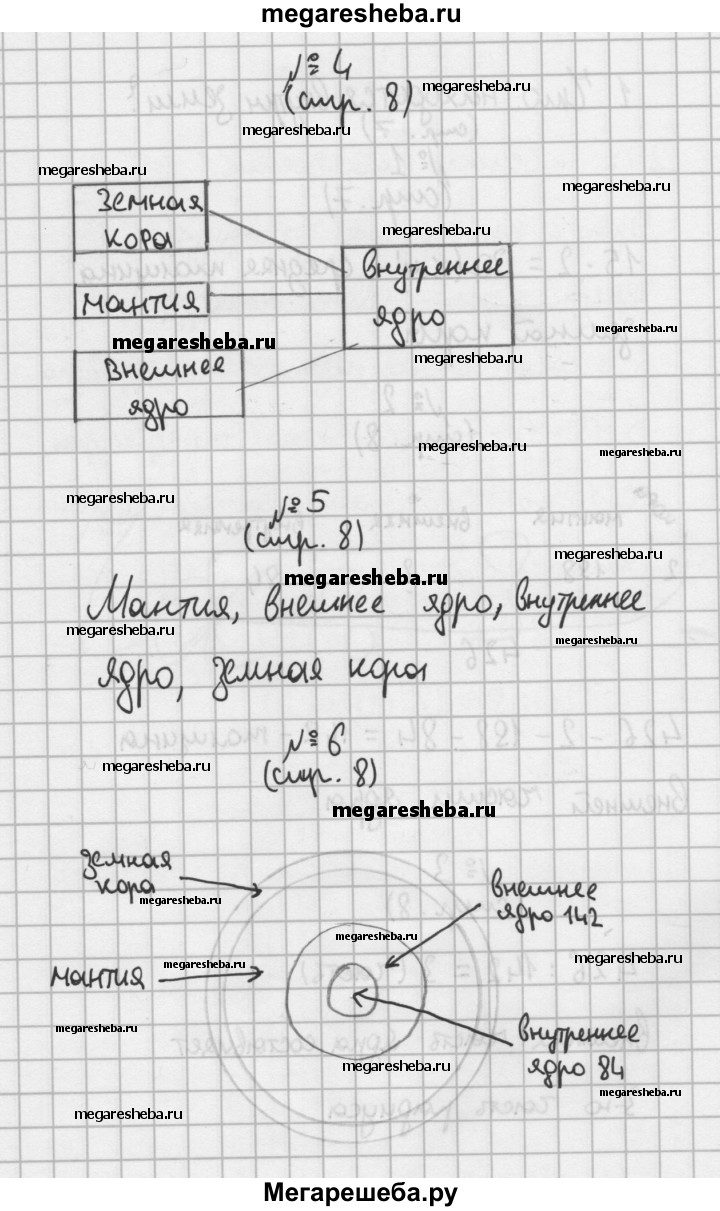 megaresheba.ru
№ 4
(стр. 8)
megaresheba.ru
megaresheba.ru
megaresheba.ru
megaresheba.ru
земная
кора
megaresheba.ru
внутреннее
ядро
мантия
megaresheba.ru
megaresheba.ru
внешнее
ядро
megaresheba.ru
megaresheba.ru
megaresheba.ru
megaresheba.ru
№ 5
(стр. 8)
megaresheba.ru
megaresheba.ru
Мантия, внешнее ядро, внутреннее
megaresheba.ru
megaresheba.ru
ядро, земная кора
№ 6
(стр. 8)
megaresheba.ru
megaresheba.ru
земная
кора
megaresheba.ru
внешнее
ядро 142
megaresheba.ru
megaresheba.ru
мантия
megaresheba.ru
megaresheba.ru
внутреннее
ядро 84
megaresheba.ru
megaresheba.ru
megaresheba.ru
Мегарешеба.ру